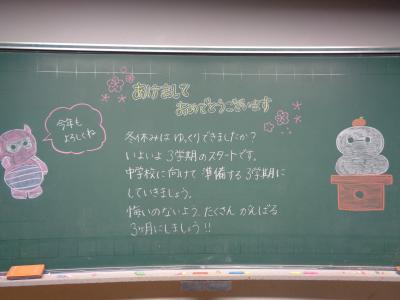 あけまして
おめでとうございます
今年も
よろしくね
冬休みは ゆっくりできましたか？
いよいよ 3学期のスタートです。
中学校に向けて 準備する 3学期に
していきましょう。
悔いのないよう、たくさん がんばる
3ヶ月にしましょう!!